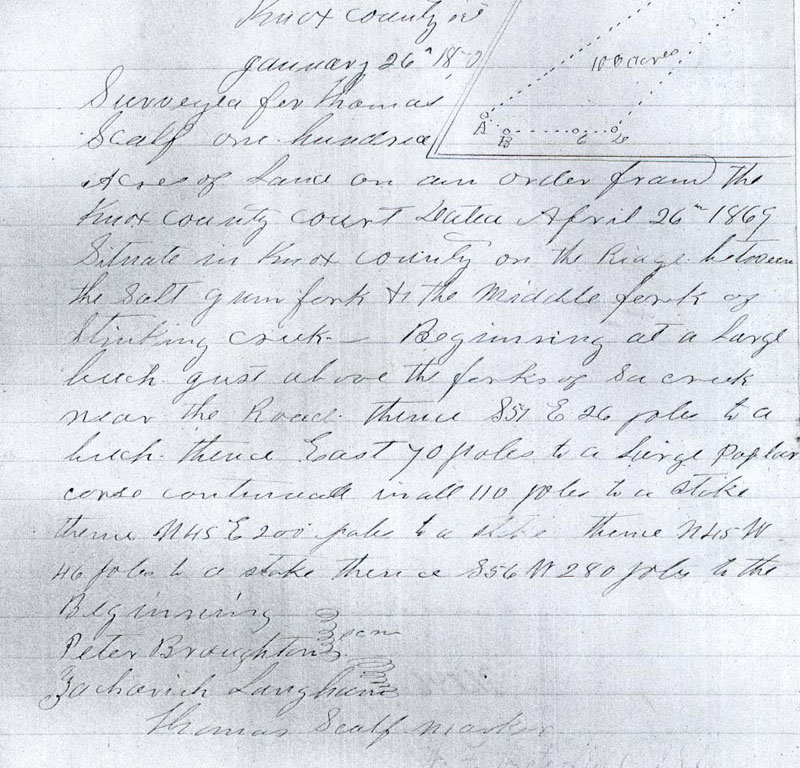 Knox county
January 26th 18
Surveyed for Thomas
Scalf one hundred
100 acres
A
B
Acres of Land on an order from the
Knox county court Dated April 26th 1869
Situate in Knox county on the Ridge between
the Salt gum fork & the Middle fork of
Stinking creek Beginning at a Large
beech gust above the forks of Sa creek
near the Road. thence S51 E 26 poles to a
beech. thence East 70 poles to a Large Poplar
corse continued in all 110 poles to a stake
thence N45 E 200 poles to a stake thence N45 W
46 poles to a stake thence S56 W 280 poles to the
Beginning
Peter Broughton
Zachariah Langham
Thomas Scalf marker